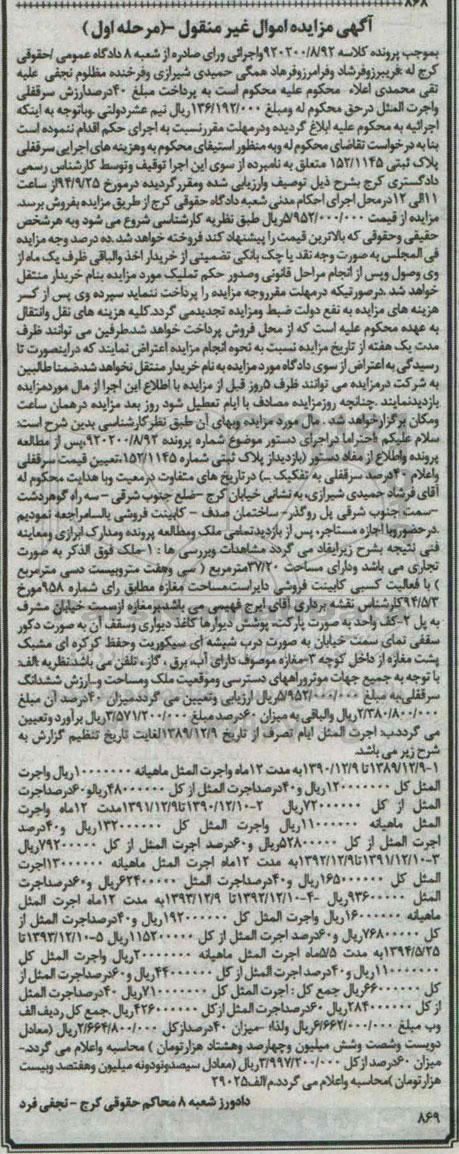 ۸۶۸
آگهی مزایده اموال غیر منقول -(مرحله اول )
بموجب پرونده کلاسه ۹۲۰۲۰۰/۸/۹۲واجرائی ورای صادره از شعبه ۸ دادگاه عمومی /حقوقی
کرج له :فریبرزوفرشاد وفرامرزوفرهاد همگی حمیدی شیرازی وفرخنده مظلوم نجفی علیه
تقی محمدی اعلاء محکوم علیه محکوم است به پرداخت مبلغ ۴۰درصدارزش سرقفلی
واجرت المثل درحق محکوم له ومبلغ ۱۳۶/۱۹۲/۰۰۰ریال نیم عشردولتی .وباتوجه به اینکه
اجرائیه به محکوم علیه ابلاغ گردیده ودرمهلت مقررنسبت به اجرای حکم اقدام ننموده است
بنا به درخواست تقاضای محکوم له وبه منظور استیفای محکوم به وهزینه های اجرایی سرقفلی
پلاک ثبتی ۱۵۲/۱۱۴۵ متعلق به نامبرده از سوی این اجرا توقیف وتوسط کارشناس رسمی
دادگستری کرج بشرح ذیل توصیف وارزیابی شده ومقررگردیده درمورخ ۹۴/۹/۲۵از ساعت
۱۱الی ۱۲درمحل اجرای احکام مدنی شعبه دادگاه حقوقی کرج از طریق مزایده بفروش برسد.
مزایده از قیمت ۵/۹۵۲/۰۰۰/۰۰۰ریال طبق نظریه کارشناسی شروع می شود وبه هرشخص
حقیقی وحقوقی که بالاترین قیمت را پیشنهاد کند فروخته خواهد شد.ده درصد وجه مزایده
فی المجلس به صورت وجه نقد یا چک بانکی تضمینی از خریدار اخذ والباقی ظرف یک ماه از
وی وصول وپس از انجام مراحل قانونی وصدور حکم تملیک مورد مزایده بنام خریدار منتقل
خواهد شد .درصورتیکه درمهلت مقرروجه مزایده را پرداخت ننماید سپرده وی پس از کسر
هزینه های مزایده به نفع دولت ضبط ومزایده تجدیدمی گردد.کلیه هزینه های نقل وانتقال
به عهده محکوم علیه است که از محل فروش پرداخت خواهد شد.طرفین می توانند ظرف
مدت یک هفته از تاریخ مزایده نسبت به نحوه انجام مزایده اعتراض نمایند که دراینصورت تا
رسیدگی به اعتراض از سوی دادگاه مورد مزایده به نام خریدار منتقل نخواهد شد.ضمنا طالبین
به شرکت درمزایده می توانند ظرف ۵روز قبل از مزایده با اطلاع این اجرا از مال موردمزایده
بازدیدنمایند .چنانچه روزمزایده مصادف با ایام تعطیل شود روز بعد مزایده درهمان ساعت
ومکان برگزارخواهد شد . مال مورد مزایده وبهای آن طبق نظرکارشناسی بدین شرح است:
سلام علیکم :احتراما دراجرای دستور موضوع شماره پرونده ۹۲۰۲۰۰/۸/۹۲،پس از مطالعه
پرونده واطلاع از مفاد دستور (بازدیداز پلاک ثبتی شماره ۱۵۲/۱۱۴۵،تعیین قیمت سرقفلی
واعلام ۴۰درصد سرقفلی به تفکیک ـ) درتاریخ های متفاوت درمعیت وبا هدایت محکوم له
آقای فرشاد حمیدی شیرازی، به نشانی خیابان کرج -ضلع جنوب شرقی - سه راه گوهردشت
-سمت جنوب شرقی پل روگذر- ساختمان صدف - کابینت فروشی بالسامراجعه نمودیم
.درحضوروبا اجازه مستاجر، پس از بازدیدتمامی ملک ومطالعه پرونده ومدارک ابرازی ومعاینه
فنی نتیجه بشرح زیرایفاد می گردد مشاهدات وبررسی ها : ۱-ملک فوق الذکر به صورت
تجاری می باشد ودارای مساحت ۳۷/۲۰مترمربع ( سی وهفت متروبیست دسی مترمربع
) با فعالیت کسبی کابینت فروشی دایراست.مساحت مغازه مطابق رای شماره ۹۵۸مورخ
۹۴/۵/۳کارشناس نقشه برداری آقای ایرج فهیمی می باشد.برمغازه ازسمت خیابان مشرف
به پل ۲-کف واحد به صورت پارکت، پوشش دیوارها کاغذ دیواری وسقف آن به صورت دکور
سقفی نمای سمت خیابان به صورت درب شیشه ای سیکوریت وحفظ کرکره ای مشبک
پشت مغازه از داخل کوچه ۳-مغازه موصوف دارای آب، برق ، گاز ، تلفن می باشد:نظریه :الف:
با توجه به جمیع جهات موثروراههای دسترسی وموقعیت ملک ومساحت و.ارزش ششدانگ
سرقفلی،به مبلغ ۵/۹۵۲/۰۰۰/۰۰۰ریال ارزیابی وتعیین می گردد.میزان ۴۰درصد آن مبلغ
۲/۳۸۰/۸۰۰/۰۰۰ریال والباقی به میزان ۶۰درصد مبلغ ۳/۵۷۱/۲۰۰/۰۰۰ریال برآورد وتعیین
می گردد.ب: اجرت المثل ایام تصرف از تاریخ ۱۳۸۹/۱۲/۹لغایت تاریخ تنظیم گزارش به
شرح زیر می باشد.
۱-۱۳۸۹/۱۲/۹تا ۱۳۹۰/۱۲/۹به مدت ۱۲ماه واجرت المثل ماهیانه ۱۰۰۰۰۰۰۰ریال واجرت
المثل کل ۱۲۰۰۰۰۰۰۰ریال و۴۰درصداجرت المثل از کل ۴۸۰۰۰۰۰۰ریالو۶۰درصداجرت
المثل از کل ۷۲۰۰۰۰۰۰ریال ۲-۱۳۹۰/۱۲/۱۰تا۱۳۹۱/۱۲/۹مدت ۱۲ماه واجرت
المثل ماهیانه ۱۱۰۰۰۰۰۰ریال واجرت المثل کل ۱۳۲۰۰۰۰۰۰ریال و۴۰درصد
اجرت المثل از کل ۵۲۸۰۰۰۰۰ریال و۶۰درصد اجرت المثل از کل ۷۹۲۰۰۰۰۰ریال
۳-۱۳۹۱/۱۲/۱۰تا۱۳۹۲/۱۲/۹به مدت ۱۲ماه اجرت المثل ماهیانه ۱۳۰۰۰۰۰۰اجرت
المثل کل ۱۶۵۰۰۰۰۰۰ریال و۴۰درصداجرت المثل ۶۲۴۰۰۰۰۰ریال و۶۰درصداجرت
المثل ۹۳۶۰۰۰۰۰ریال ۴-۱۳۹۲/۱۲/۱۰تا ۱۳۹۳/۱۲/۹به مدت ۱۲ماه اجرت المثل
ماهیانه ۱۶۰۰۰۰۰۰ریال واجرت المثل کل ۱۹۲۰۰۰۰۰۰ریال و۴۰درصداجرت المثل از
کل ۷۶۸۰۰۰۰۰ریال و۶۰درصد اجرت المثل از کل ۱۱۵۲۰۰۰۰۰ریال ۵-۱۳۹۳/۱۲/۱۰تا
۱۳۹۴/۵/۲۵به مدت ۵/۵ماه اجرت المثل ماهیانه ۲۰۰۰۰۰۰۰ریال واجرت المثل کل
۱۱۰۰۰۰۰۰۰ریال و۴۰درصد اجرت المثل از کل ۴۴۰۰۰۰۰۰ریال و۶۰درصداجرت المثل از
کل ۶۶۰۰۰۰۰۰ریال جمع کل : اجرت المثل کل ۷۱۰۰۰۰۰۰۰ریال ۴۰درصد اجرت المثل
از کل ۲۸۴۰۰۰۰۰۰ریال ۶۰درصداجرت المثل ازکل ۴۲۶۰۰۰۰۰۰ریال .جمع کل ردیف الف
وب مبلغ ۶/۶۶۲/۰۰۰/۰۰۰ریال ولذا: -میزان ۴۰درصدازکل ۲/۶۶۴/۸۰۰/۰۰۰ریال (معادل
دویست وشصت وشش میلیون وچهارصد وهشتاد هزارتومان ) محاسبه واعلام می گردد.-
میزان ۶۰درصد از کل ۳/۹۹۷/۲۰۰/۰۰۰ریال (معادل سیصدونودونه میلیون وهفتصد وبیست
هزارتومان )محاسبه واعلام می گردد.م/الف۲۹۰۲۵
دادورز شعبه ۸ محاکم حقوقی کرج - نجفی فرد
۸۶۹